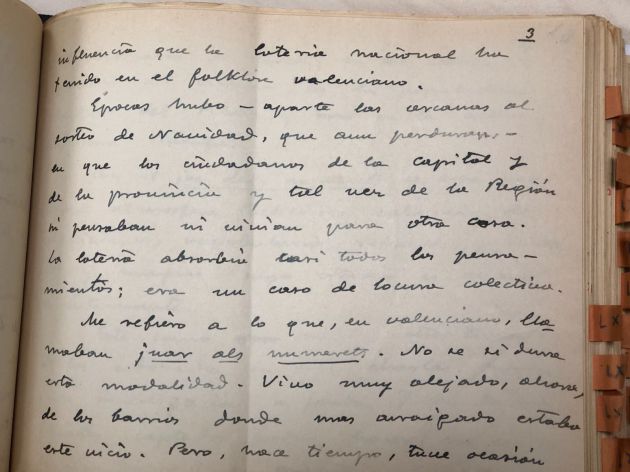 3
influencia que la loteria nacional ha
tenido en el folklore valenciano.
Epocas hubo – aparte las cercanas al
sorteo de Navidad, que aun perduran, –
en que los ciudadanos de la capital y
de la provincia y tal vez de la Región
ni pensaban ni vivian para otra cosa.
La loteria absorbia casi todos los pensa-
mientos; era un caso de locura colectiva.
Me refiero a lo que, en valenciano, lla
maban juar als numerets. No se si dura
esta modalidad. Vivo muy alejado, ahora,
de los barrios donde mas arraigado estaba
este vicio. Pero, hace tiempo, tuve ocasión
L X
L X
L X